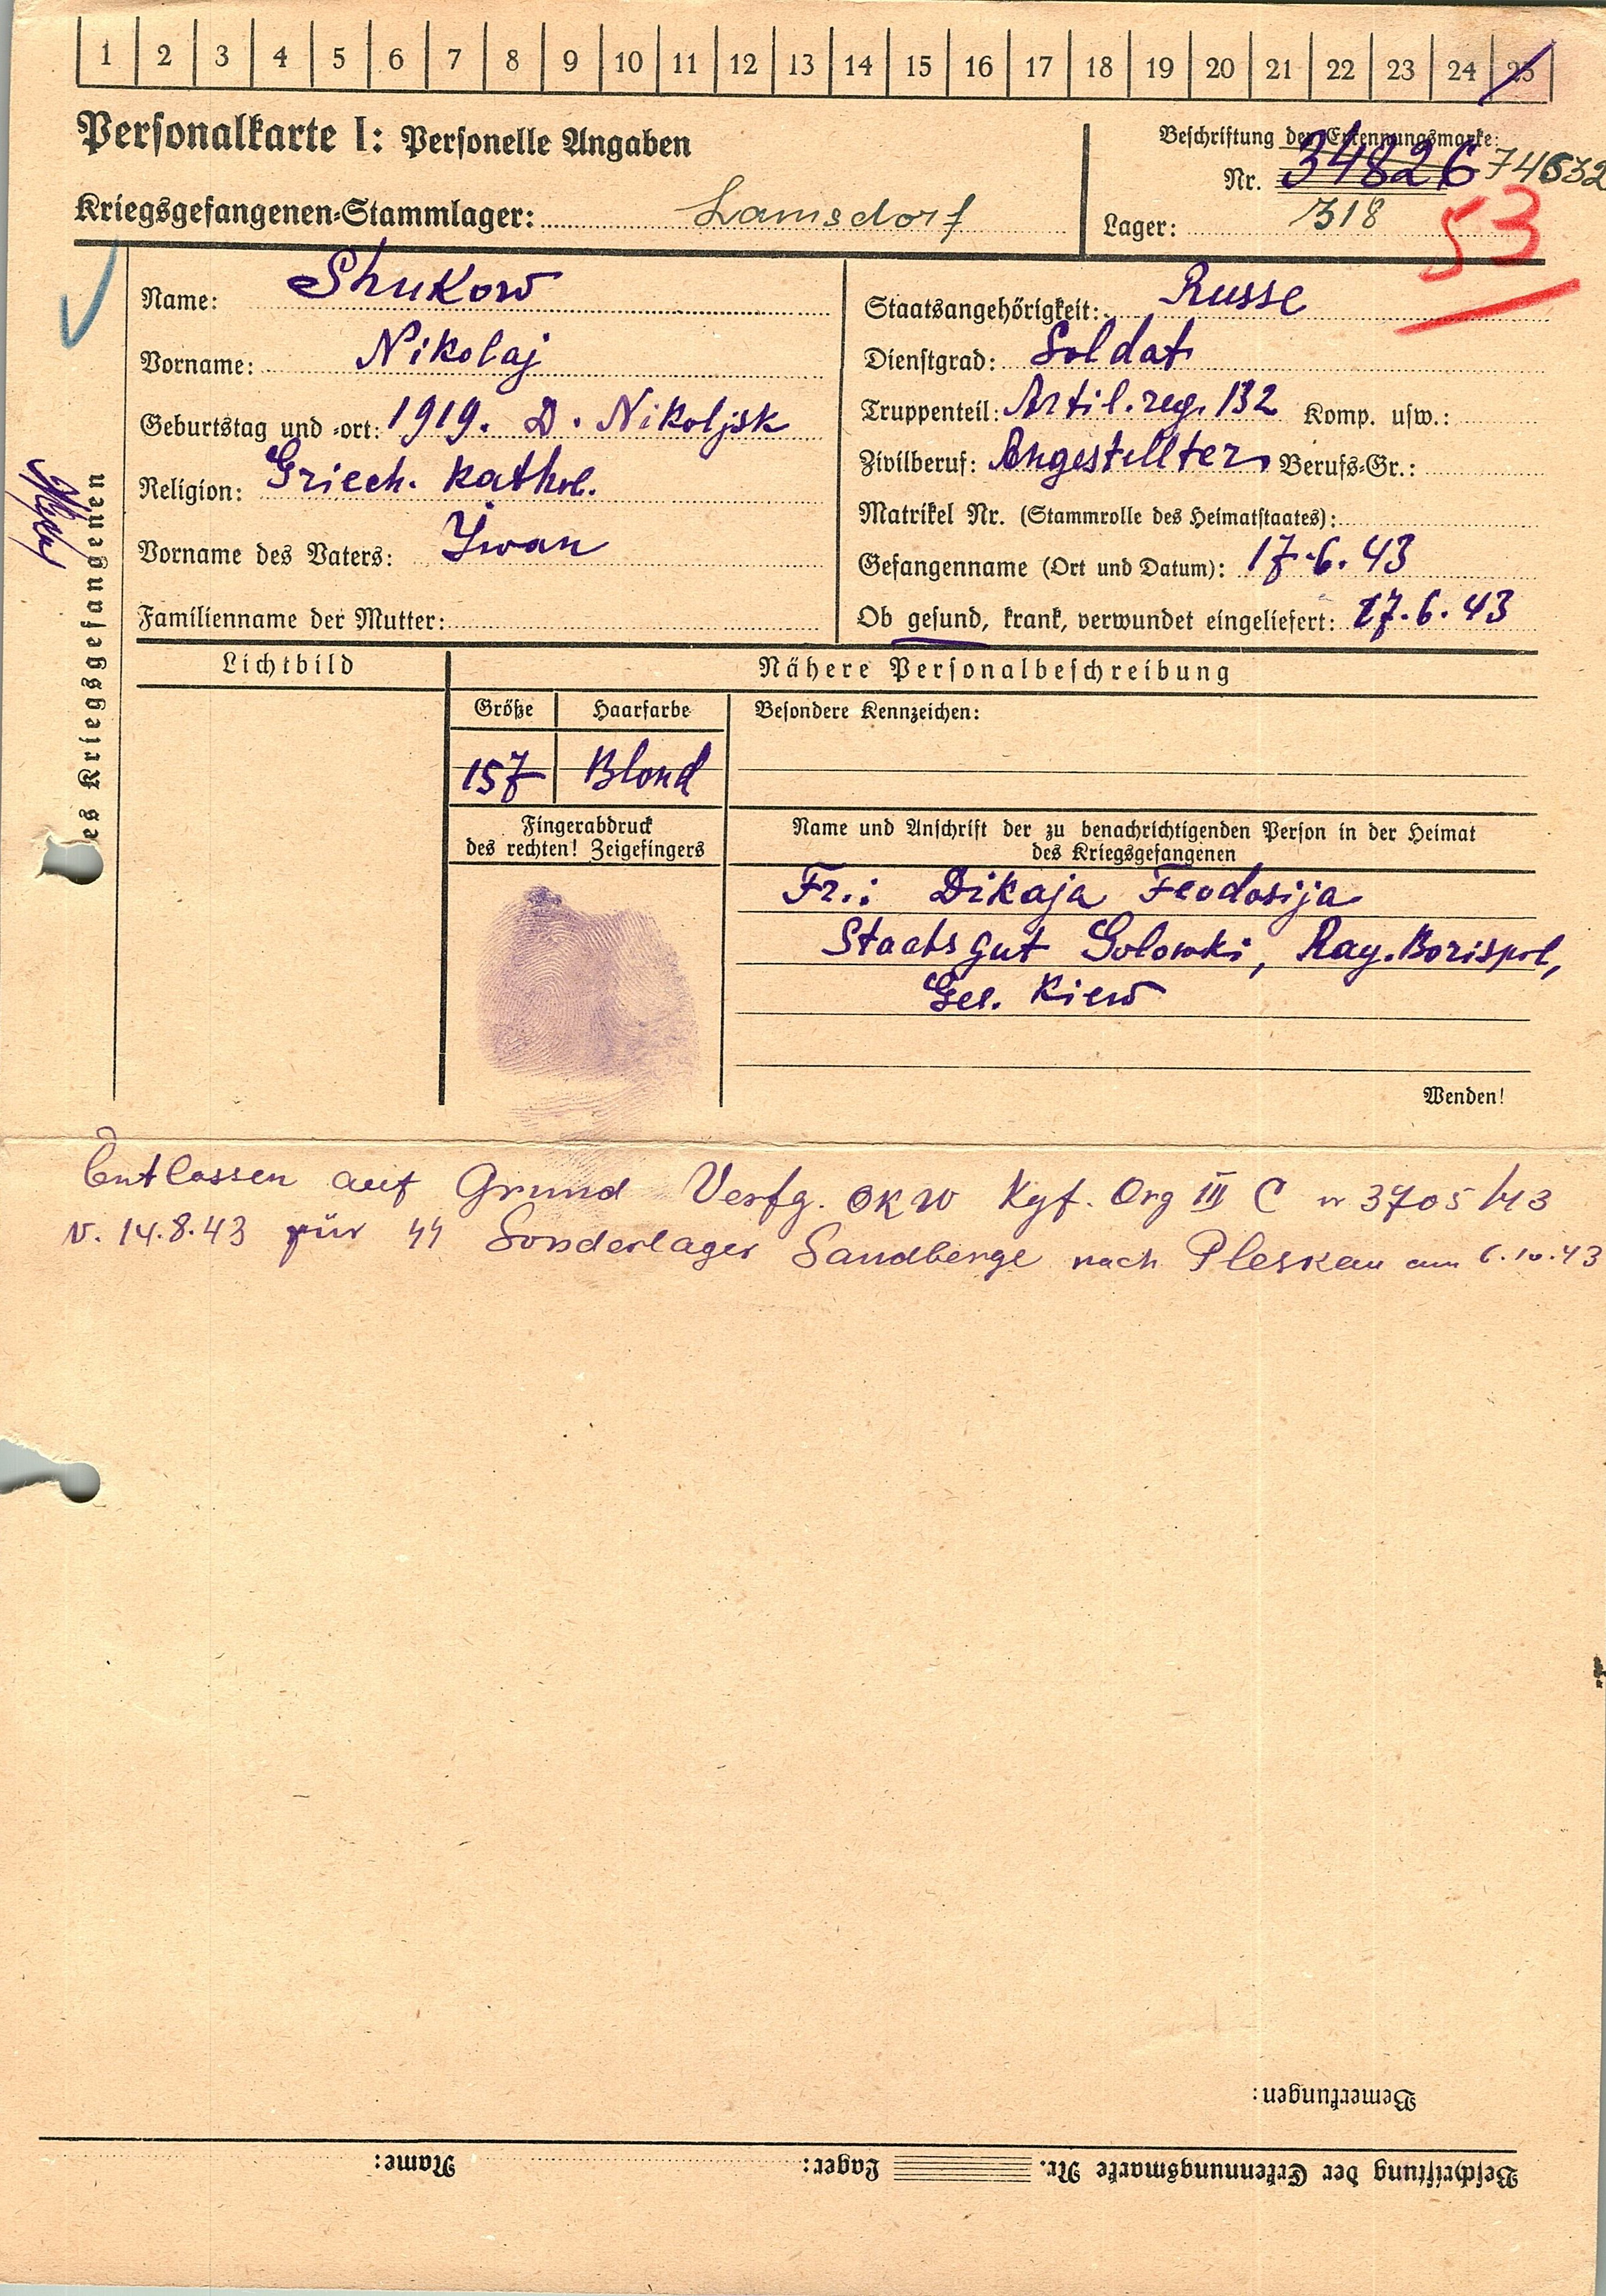 1 2 3 4 5 6 7 8 9 10 11 12 13 14 15 16 17 18 19 20 21 22 23 24 25
Personalkarte I: Personelle Angaben
Kriegsgefangenen-Stammlager: Lamsdorf
Beschriftung der Erkennungsmarke:
Nr. 34826 74632
Lager: 318
53
des Kriegsgefangenen
Name: Shukow
Vorname: Nikolaj
Geburtstag und -ort: 1919. D. Nikoljsk
Religion: Griech. kathol.
Vorname des Vaters: Iwan
Familienname der Mutter:
Staatsangehörigkeit: Russe
Dienstgrad: Soldat
Truppenteil: Artil. reg. 132 Komp. usw.:
Zivilberuf: Angestellter Berufs-Gr.:
Matrikel Nr. (Stammrolle des Heimatstaates):
Gefangenname (Ort und Datum): 17.6.43
Ob gesund, krank, verwundet eingeliefert: 17.6.43
Lichtbild
Nähere Personalbeschreibung
Größe Haarfarbe Besondere Kennzeichen:
157 Blond
Fingerabdruck
des rechten! Zeigefingers
Name und Anschrift der zu benachrichtigenden Person in der Heimat
des Kriegsgefangenen
Fr.: Dikaja Feodosija
Staatsgut Golowki, Ray. Borispol,
Gel. Kiew
Wenden!
Entlassen auf Grund Verfg. OKW Kgf. Org III C nr 3705/43
v. 14.8.43 für SS Sonderlager Sandberge nach Pleskau am 6.10.43
Bemerkungen:
Beschriftung der Erkennungsmarke Nr. Lager: Name: